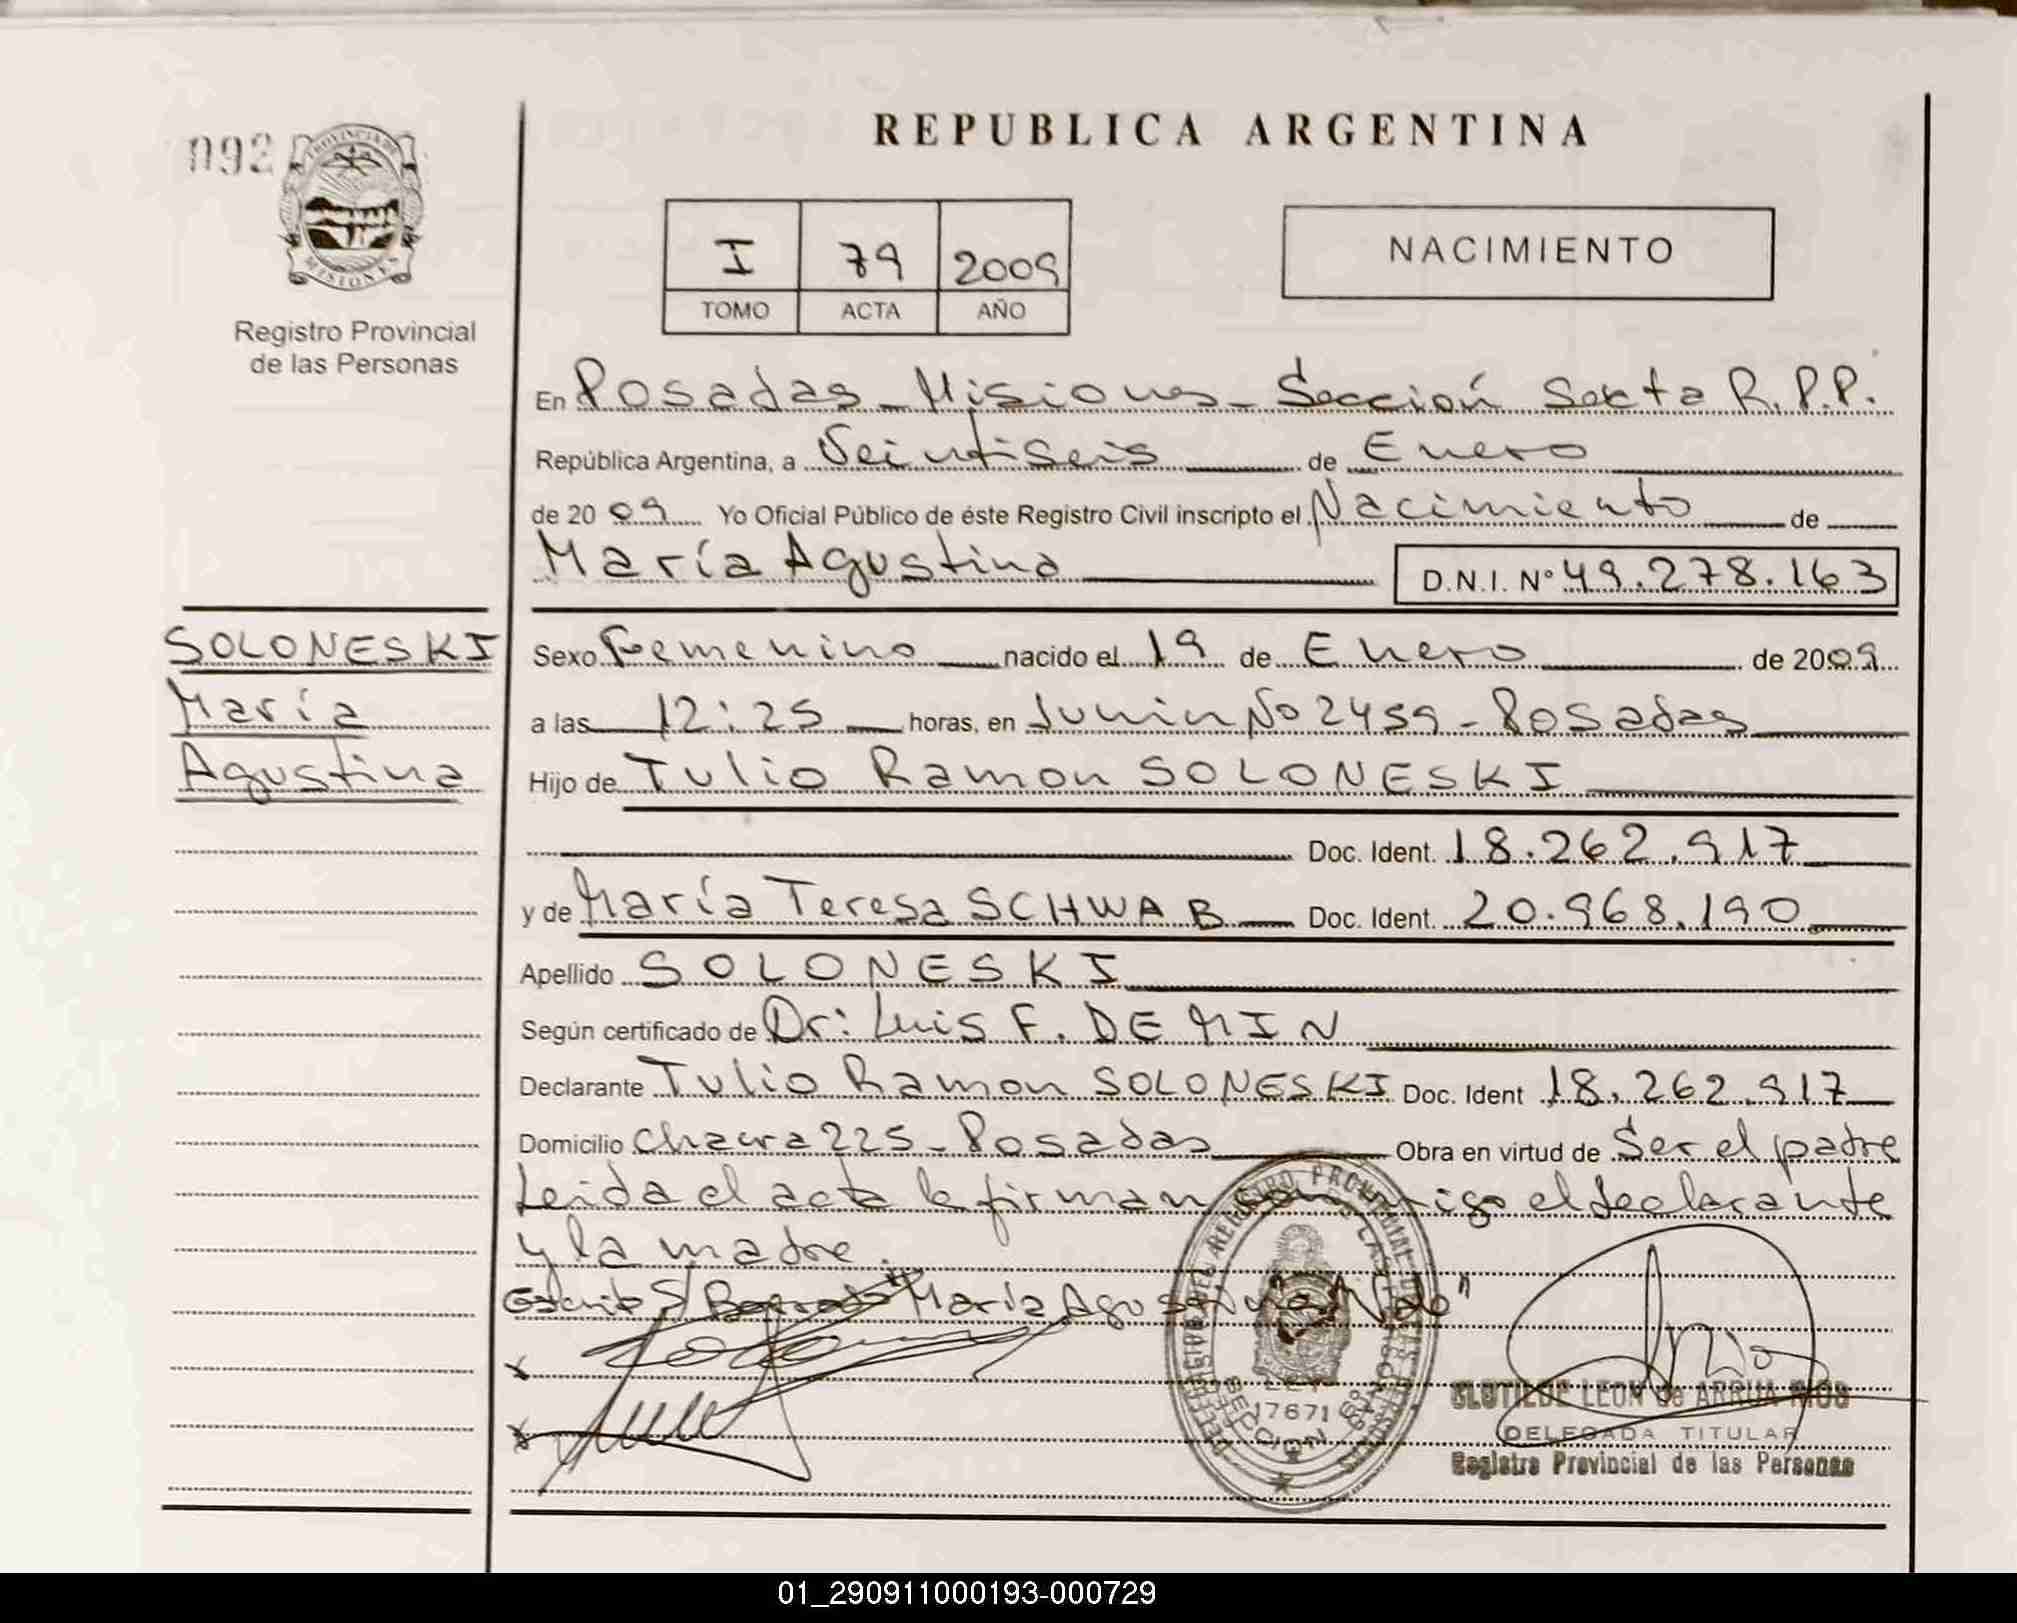 REPUBLICA ARGENTINA
092
PROVINCIA DE MISIONES
Registro Provincial
de las Personas
I 79 2009
TOMO ACTA AÑO
NACIMIENTO
En Posadas - Misiones - Sección Sexta R.P.P.
República Argentina, a Veintiseis de Enero
de 20 09 Yo Oficial Público de éste Registro Civil inscripto el Nacimiento de
María Agustina D.N.I. Nº 49.278.163
SOLONESKI
María
Agustina
Sexo Femenino nacido el 19 de Enero de 2009
a las 12:25 horas, en Junin Nº 2459 - Posadas
Hijo de Tulio Ramon SOLONESKI
Doc. Ident. 18.262.917
y de María Teresa SCHWAB Doc. Ident. 20.968.190
Apellido SOLONESKI
Según certificado de Dr: Luis F. DEMIN
Declarante Tulio Ramon SOLONESKI Doc. Ident 18.262.917
Domicilio Chacra 225 - Posadas Obra en virtud de Ser el padre
Leida el acta la firman conmigo el declarante
y la madre.
María
17671
CLOTILDE LEON de ARRUA RIOS
DELEGADA TITULAR
Registro Provincial de las Personas
01_290911000193-000729